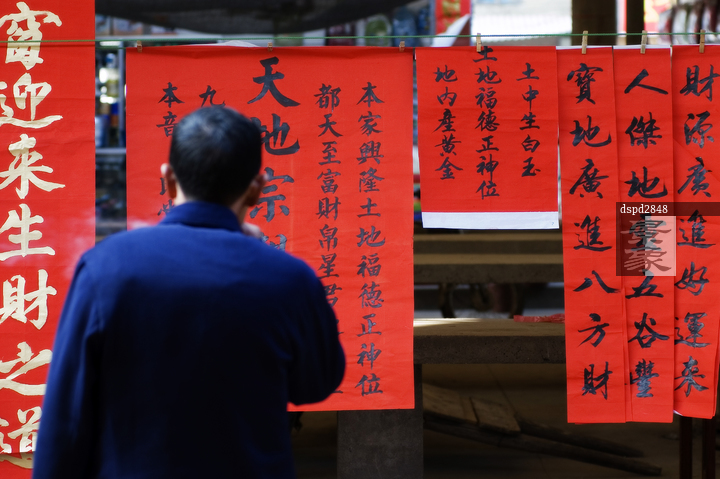 財源廣進好運来
人傑地五谷豐
寶地廣進八方財
土中生白玉
土地福德正神位
地内產黄金
本家興隆土地福德正神位
都天至富財帛星君
天地宗
九
本音
窗迎来生財之道
dspd2848